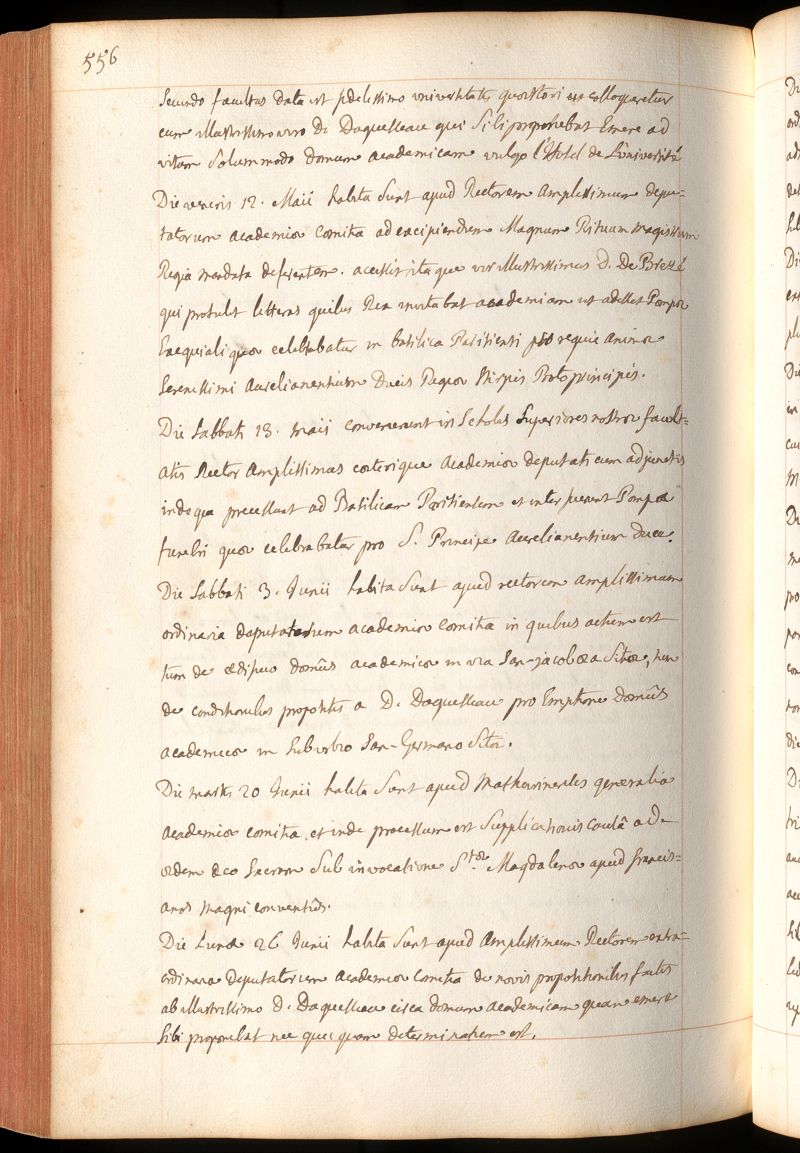 556
Secundo facultas data est fidelissimo universitatis quæstori ut colloqueretur
cum illustrissimo viro D. Daquesseau qui sibi proponebat Emere ad
vitam solummodo domum academicam vulgo l'Hotel de L'université
Die veneris 12. Maii habita sunt apud Rectorem amplissimum depu-
tatorum academiæ comitia ad excipiendum Magnum Rituum magistrum
Regia mandata deferentem. accessit itaque vir illustrissimus D. De Brezé
qui protulit litteras quibus Rex invitabat academiam ut adesset Pompæ
Exequiali quæ celebrabatur in basilica Parisiensi pro requie animæ
Serenissimi Aurelianensium Ducis Regiæ stirpis Protoprincipis.
Die Sabbati 13. maii convenerunt in Scholas Superiores nostræ facult=
atis Rector amplissimus cæterique academiæ deputati cum adjunctis
indeque processerunt ad Basilicam Parisiensem et interfuerunt Pompæ
funebri quæ celebrabatur pro S. Principe Aurelianensium duce.
Die Sabbati 3. Junii habita sunt apud rectorem amplissimum
ordinaria deputatorum academiæ comitia in quibus actum est
tum de ædificio domûs academicæ in via San-jacobæa Sitæ, tum
de conditionibus propositis a D. Daquesseau pro Emptione Domûs
academicæ in suburbio San-Germano Sitæ.
Die martis 20 Junii habita sunt apud Mathurinenses generalia
academiæ comitia, et inde processum est supplicationis causâ ad
ædem deo sacram sub invocatione S.tæ Magdalenæ apud francis=
canos magni conventûs.
Die Lunæ 26 Junii habita sunt apud amplissimum Rectorem extra-
ordinaria deputatorum academiæ comitia de novis propositionibus factis
ab illustrissimo D. Daquesseau circa domum academicam quam emere
sibi proponebat nec quicquam determinatum est.